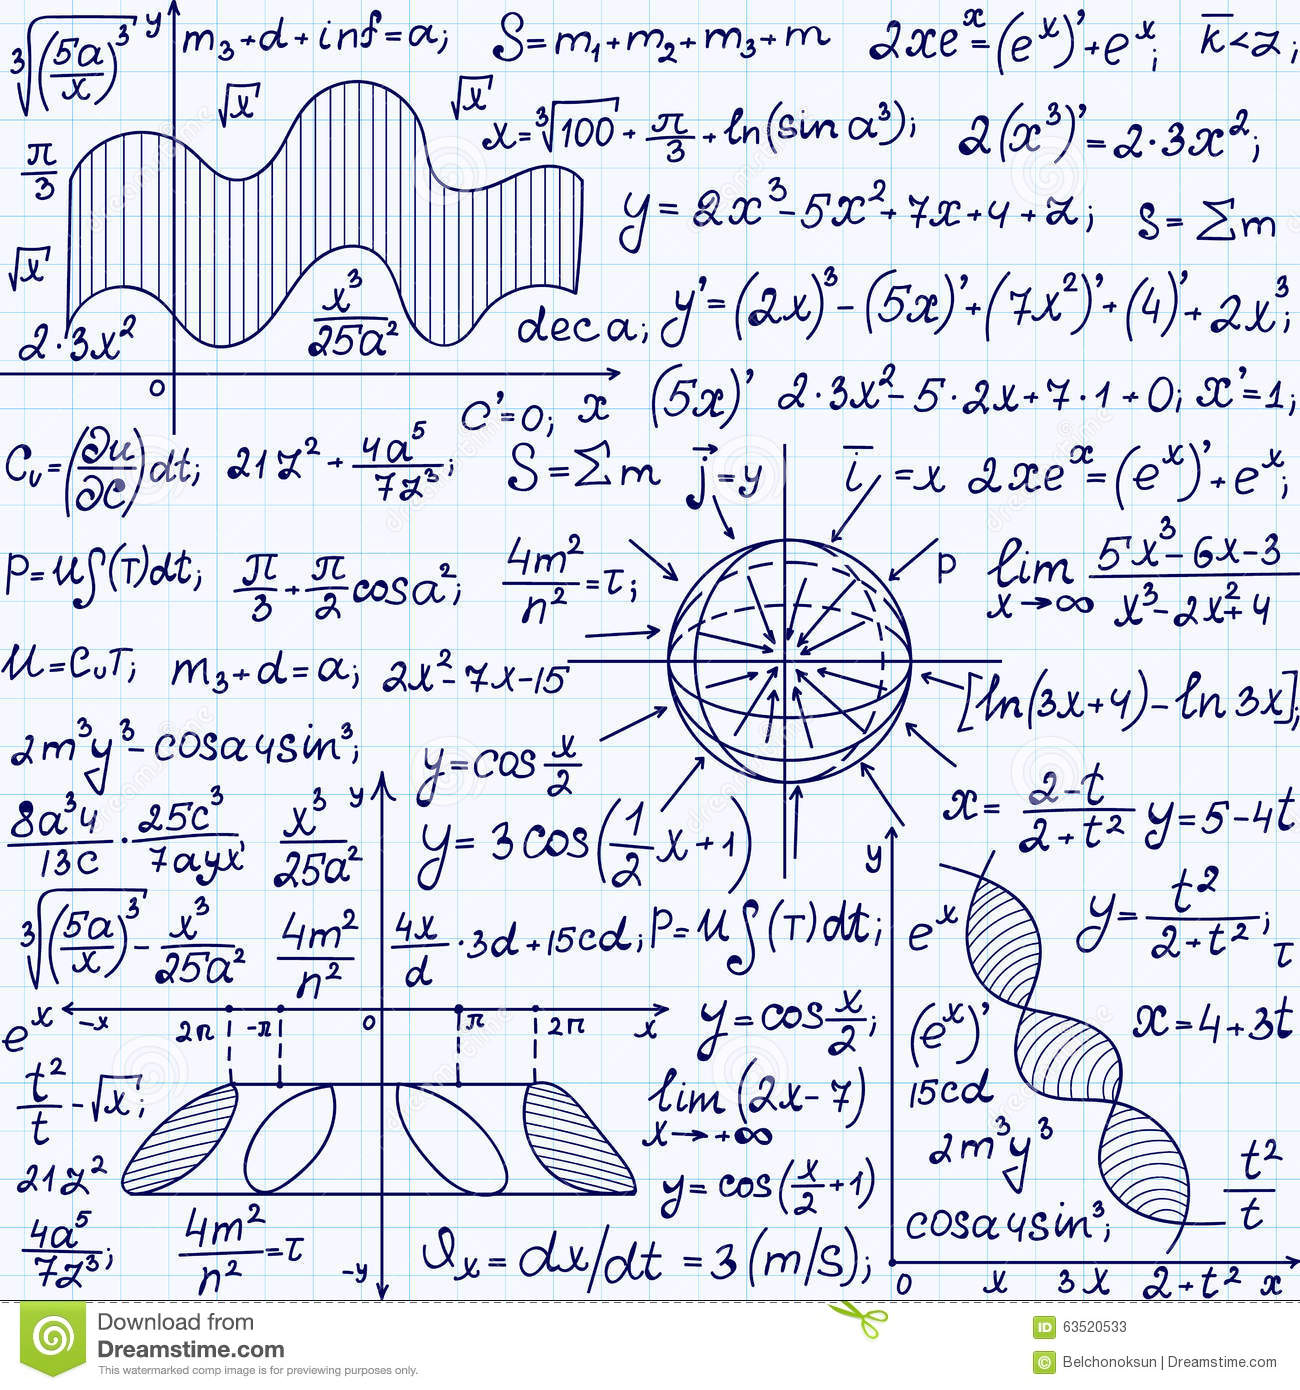 ∛(5a/x)³ y m₃+d+inf=a; S=m₁+m₂+m₃+m 2xeˣ=(eˣ)'+eˣ; k̅<z;
√x √x
π/3 x=∛100+π/3+ln(sin a³); 2(x³)'=2·3x²;
y=2x³-5x²+7x+4+z; S=Σm
√x x³/25a² y'=(2x)³-(5x)'+(7x²)'+(4)'+2x³;
2·3x² dec a;
0 x (5x)' 2·3x²-5·2x+7·1+0; x'=1;
C'=0;
Cᵥ=(∂u/∂C)dt; 21z²+4a⁵/7z³; S=Σm j⃗=y i̅=x 2xeˣ=(eˣ)'+eˣ;
P=u∫(T)dt; π/3+π/2cosa²; 4m²/n²=τ; P lim x→∞ (5x³-6x-3)/(x³-2x²+4)
U=CᵥT; m₃+d=a; 2x²-7x-15 [ln(3x+4)-ln3x];
2m³y³-cosa4sin³; y=cos x/2
8a³4/13c·25c³/7ayx x³/25a² y y=3cos(1/2x+1) x=(2-t)/(2+t²) y=5-4t
y
∛(5a/x)³-x³/25a² 4m²/n² 4x/d·3d+15cd; P=u∫(T)dt; eˣ y=t²/(2+t²); τ
eˣ -x 2π -π 0 π 2π x y=cos x/2; (eˣ)' x=4+3t
t²/t-√x; lim x→+∞ (2x-7) 15cd
2m³y³
21z² y=cos(x/2+1) t²/t
4a⁵/7z³; 4m²/n²=τ -y ϑₓ=dx/dt=3(m/s); cosa4sin³;
0 x 3x 2+t² x
Download from
Dreamstime.com
This watermarked comp image is for previewing purposes only.
ID 63520533
© Belchonoksun | Dreamstime.com